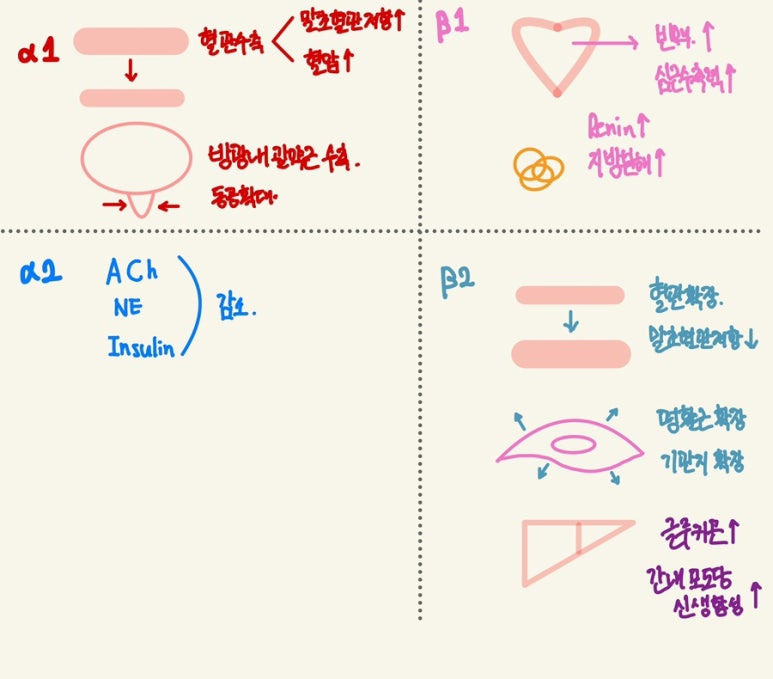 α1
혈관수축
말초혈관저항↑
혈압↑
방광내 괄약근 수축.
동공확대.
β1
빈맥.↑
심근수축력↑
Renin↑
지방분해↑
α2
ACh
NE
Insulin
감소.
β2
혈관확장.
말초혈관저항↓
평활근 확장
기관지 확장
글루카곤↑
간내 포도당
신생합성↑